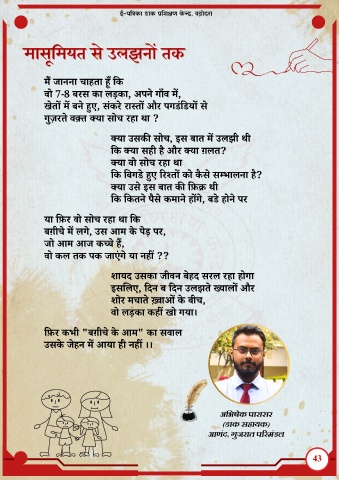 ई-पत्रिका डाक प्रशिक्षण केन्द्र, वड़ोदरा
मासूमियत से उलझनों तक
मैं जानना चाहता हूँ कि
वो 7-8 बरस का लड़का, अपने गाँव में,
खेतों में बने हुए, संकरे रास्तों और पगडंडियों से
गुज़रते वक़्त क्या सोच रहा था ?
क्या उसकी सोच, इस बात में उलझी थी
कि क्या सही है और क्या ग़लत?
क्या वो सोच रहा था
कि बिगडे हुए रिश्तों को कैसे सम्भालना है?
क्या उसे इस बात की फ़िक्र थी
कि कितने पैसे कमाने होंगे, बडे होने पर
या फ़िर वो सोच रहा था कि
बग़ीचे में लगे, उस आम के पेड़ पर,
जो आम आज कच्चे हैं,
वो कल तक पक जाएंगे या नहीं ??
शायद उसका जीवन बेहद सरल रहा होगा
इसलिए, दिन ब दिन उलझते ख्यालों और
शोर मचाते ख़्वाओं के बीच,
वो लड़का कहीं खो गया।
फ़िर कभी "बग़ीचे के आम" का सवाल
उसके जेहन में आया ही नहीं ।।
अभिषेक पारासर
(डाक सहायक)
आणंद, गुजरात परिमंडल
43